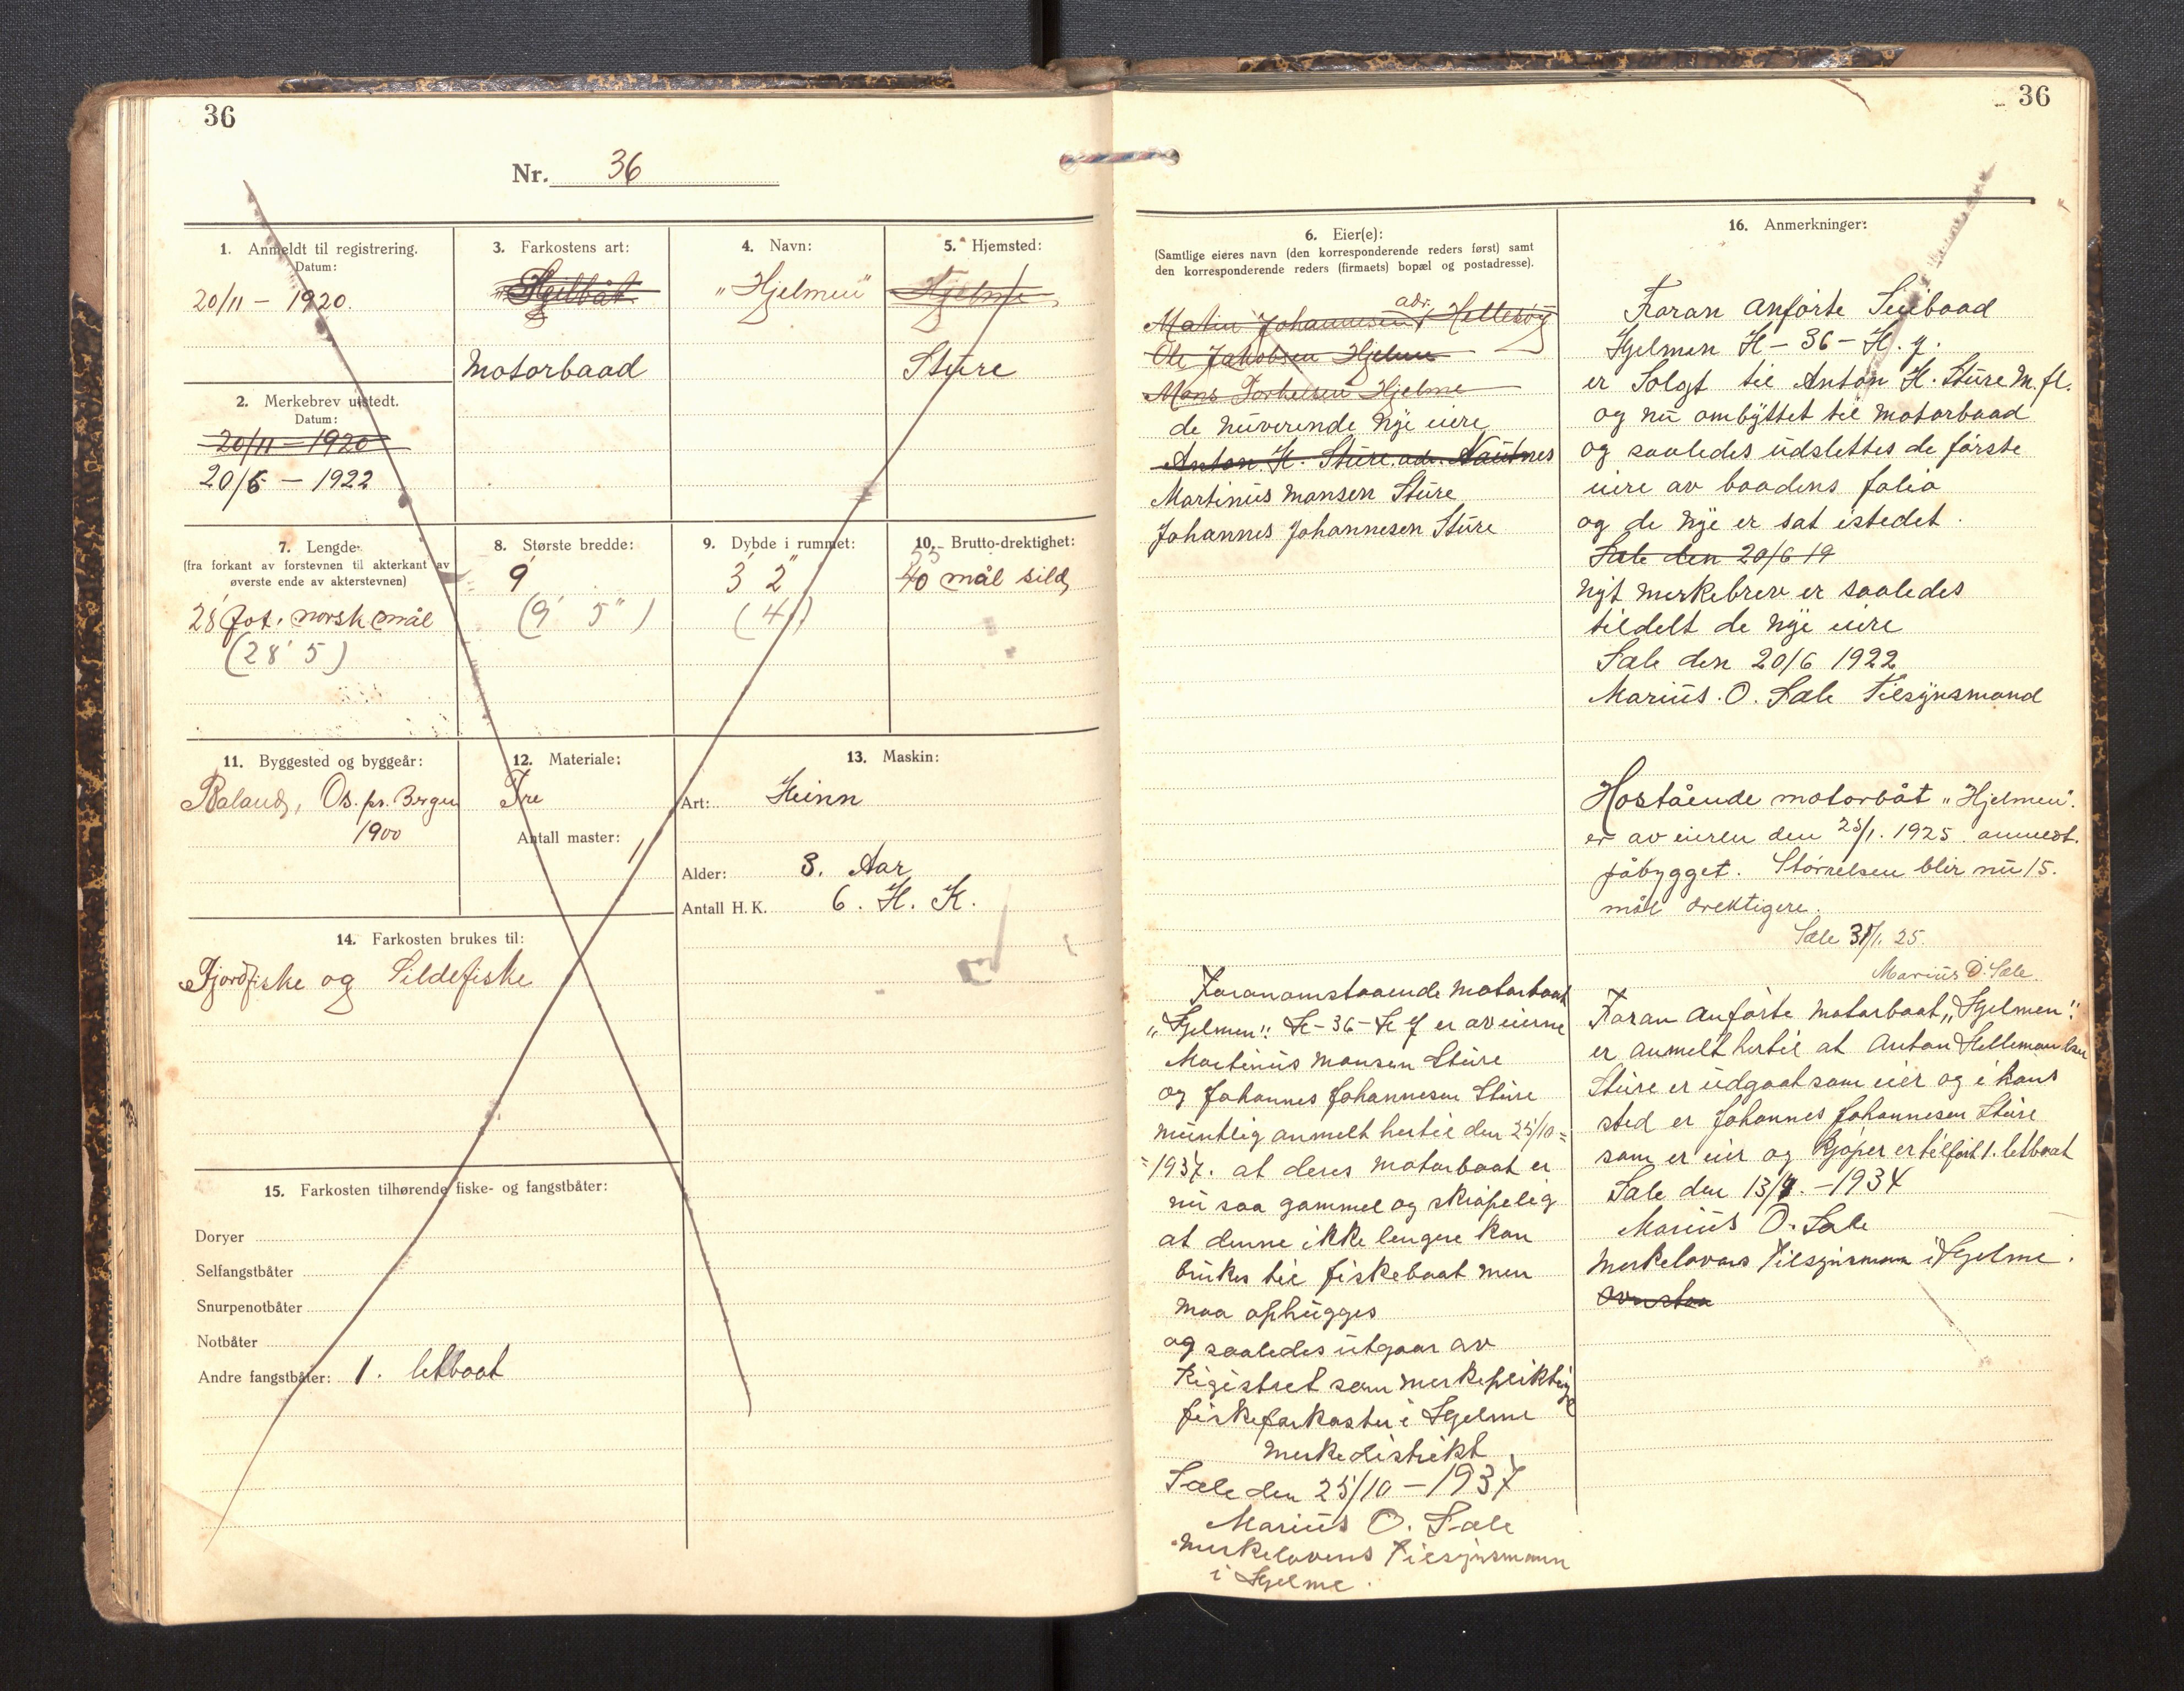 36
Nr. 36
1. Anmeldt til registrering.
Datum:
20/11 – 1920.
2. Merkebrev utstedt.
Datum:
20/11 – 1920
20/6 – 1922
3. Farkostens art:
Motorbaad
4. Navn:
„Hjelmen"
5. Hjemsted:
Hjelme
Sture
7. Lengde
(fra forkant av forstevnen til akterkant av
øverste ende av akterstevnen)
28 fot. norsk mål
(28' 5)
8. Største bredde:
9'
(9' 5")
9. Dybde i rummet:
3' 2"
(4')
10. Brutto-drektighet:
40 mål sild
11. Byggested og byggeår:
Os. pr. Bergen
1900
12. Materiale:
Tre
Antall master:
1
13. Maskin:
Art: Heinn
Alder: 3. Aar
Antall H. K. 6. H. K.
14. Farkosten brukes til:
Fjordfiske og Sildefiske
15. Farkosten tilhørende fiske- og fangstbåter:
Doryer
Selfangstbåter
Snurpenotbåter
Notbåter
Andre fangstbåter: 1. letbaat
36
6. Eier(e):
(Samtlige eieres navn (den korresponderende reders først) samt
den korresponderende reders (firmaets) bopæl og postadresse).
Johannesen adr. Hellesøy
Ole Jakobsen Hjelme
Mons Torkelsen Hjelme
de nuverende nye eiere
Anton H. Sture. adr. Nautnes
Martinus Monsen Sture
Johannes Johannesen Sture
Foranomstaaende Motorbaat
„Hjelmen". H-36-Hj er av eierne
Martinus Monsen Sture
og Johannes Johannesen Sture
muntlig anmelt hertil den 25/10=
=1937. at deres Motorbaat er
nu saa gammel og skrøpelig
at denne ikke lengere kan
brukes til fiskebaat men
maa ophugges
og saaledes utgaar av
Registret som merkepliktige
fiskefarkoster i Hjelme
merkedistrikt
Sæle den 25/10 – 1937
Marius O. Sæle
Merkelovens Tilsynsmann
i Hjelme.
16. Anmerkninger:
Foran anførte
Hjelmen H – 36 – H. j.
er Solgt til Anton H. Sture M. fl.
og nu ombyttet til Motorbaad
og saaledes udslettes de første
eiere av baadens folio
og de nye er sat istedet.
Sæle den 20/6 19
Nyt Merkebrev er saaledes
tildelt de nye eiere
Sæle den 20/6 1922
Marius. O. Sæle Tilsynsmand
Hostående motorbåt „Hjelmen".
er av eieren den 25/1. 1925. anmeldt.
påbygget. Størrelsen blir nu 15.
mål drektigere.
Sæle 31/1. 25.
Marius O. Sæle
Foran anførte Motorbaat „Hjelmen".
er anmelt hertil at Anton
Sture er udgaat som eier og i hans
sted er Johannes Johannesen Sture
som er eier og Kjøper er tilført 1. letbaat
Sæle den – 1934
Marius O. Sæle
Merkelovens Tilsynsmann i Hjelme.